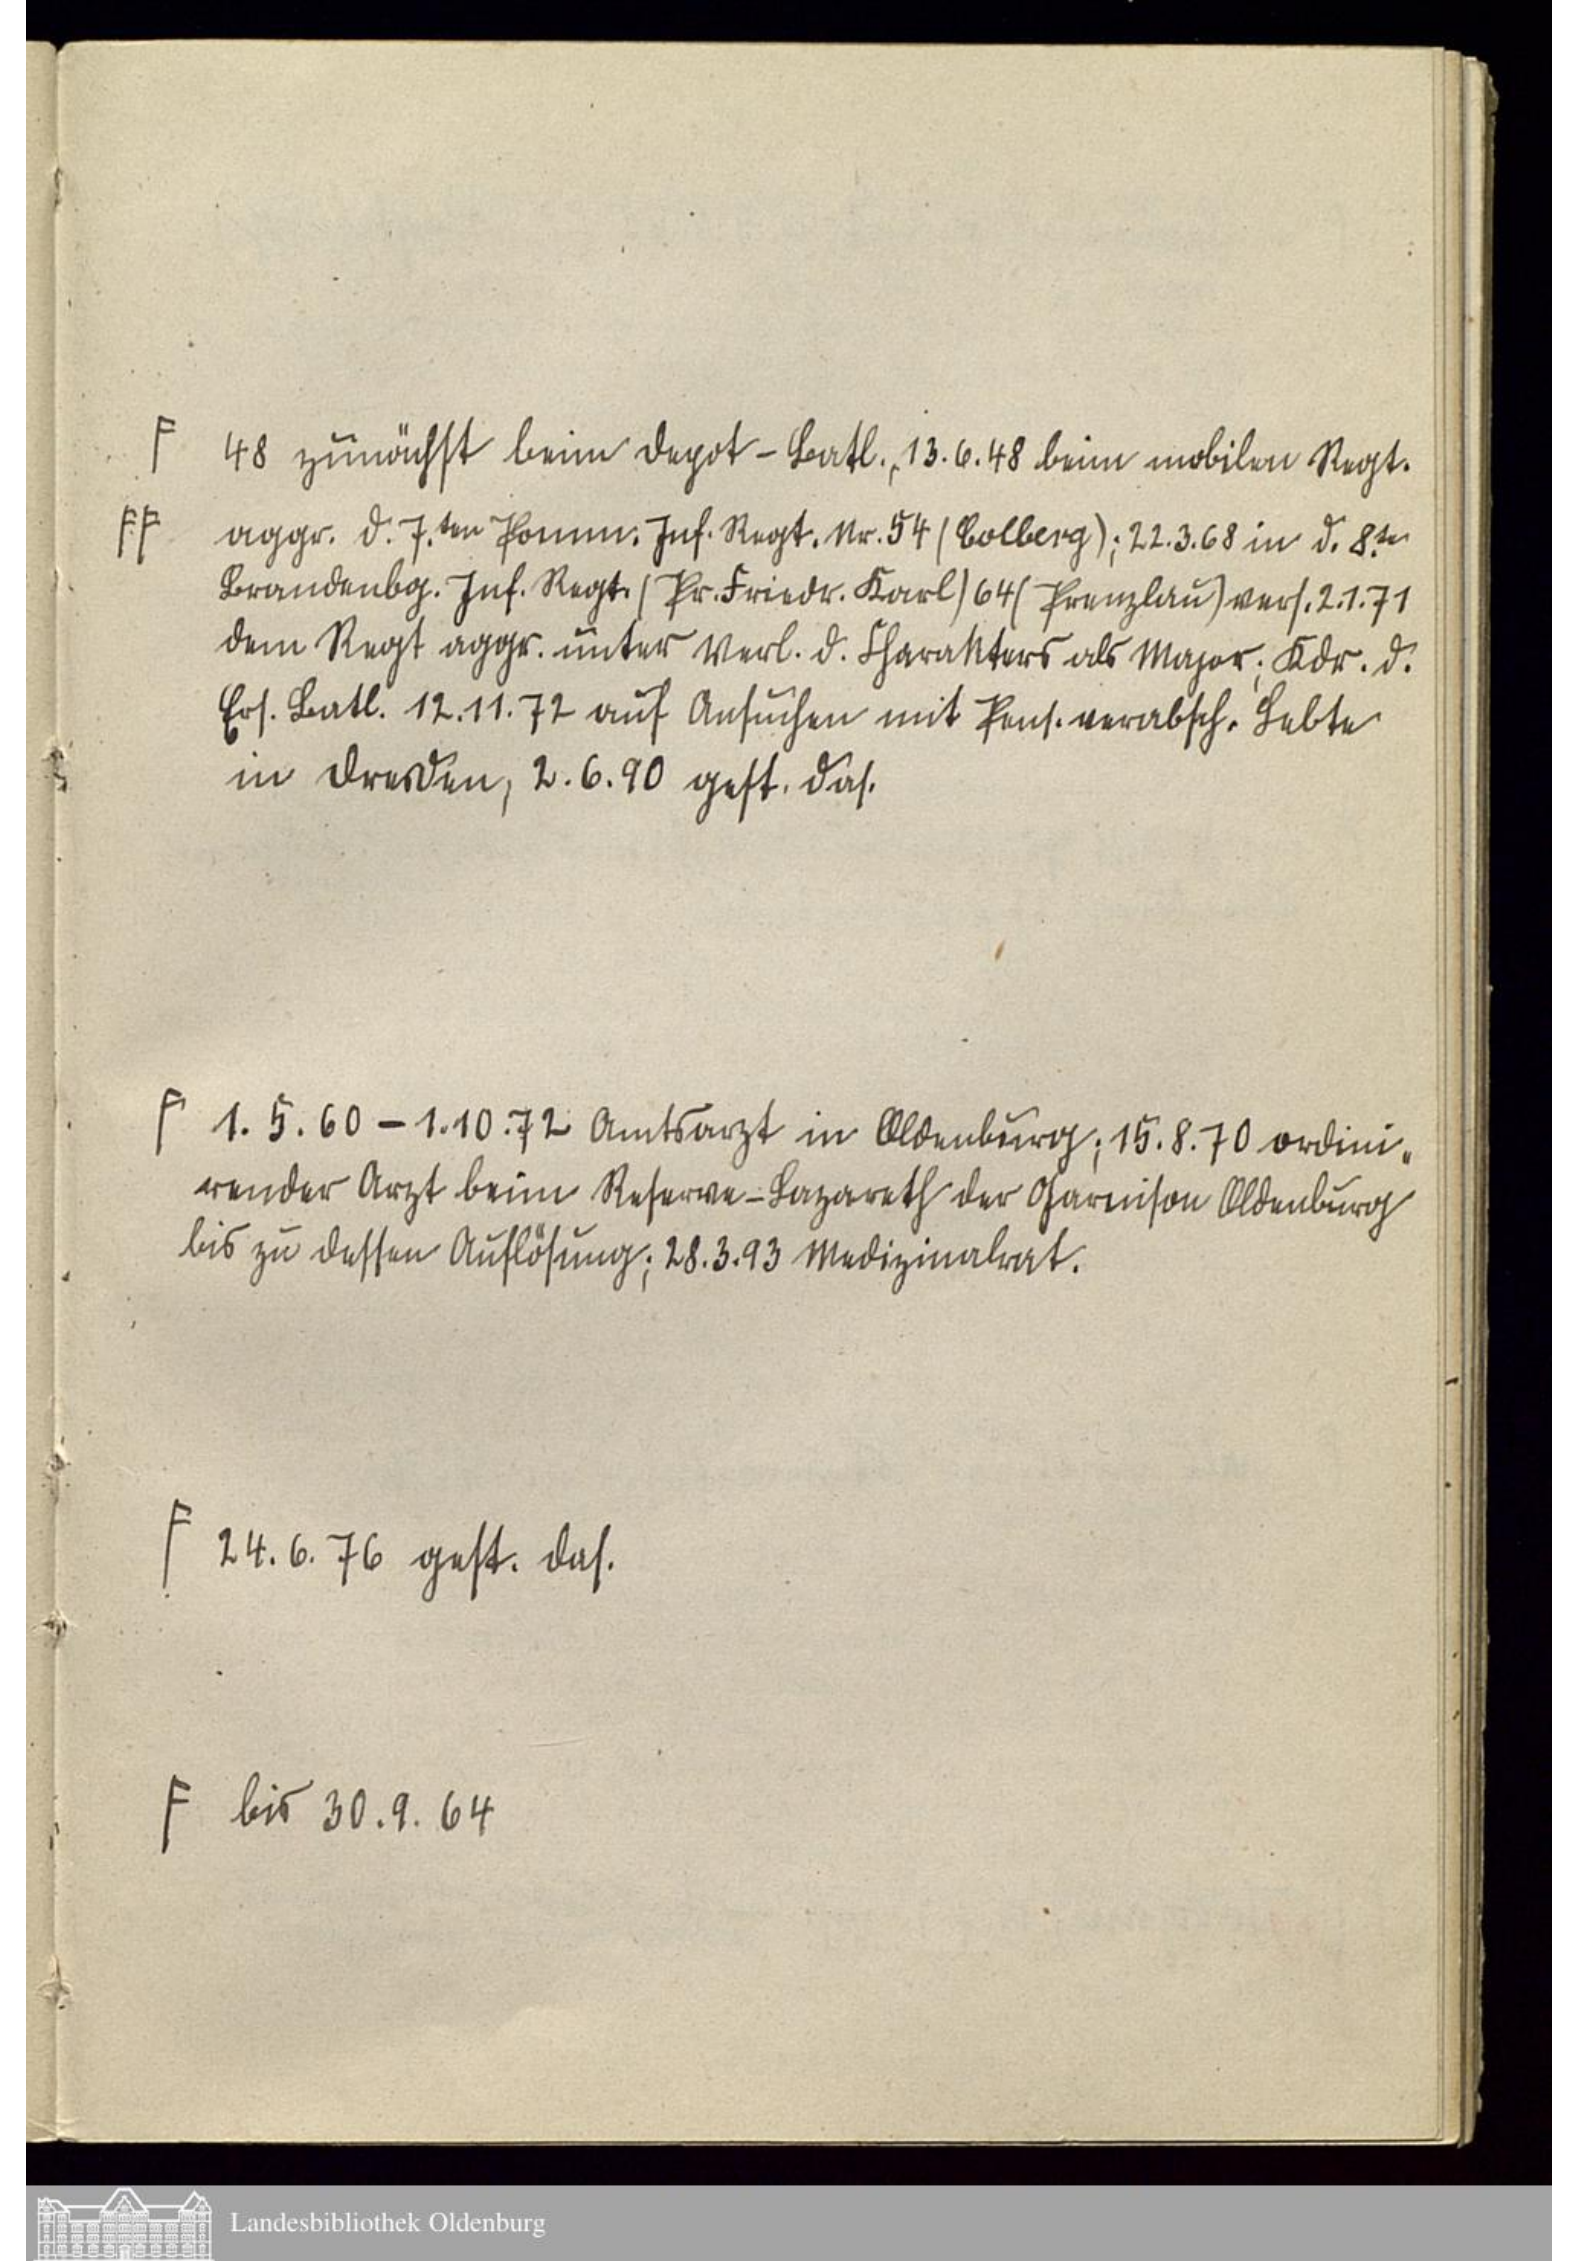 F 48 zunächst beim Depot-Batl., 13.6.48 beim mobilen Regt.
FF aggr. d. 7.ten Pomm. Inf. Regt. Nr. 54 (Colberg); 22.3.68 in d. 8.te
Brandenbg. Inf. Regt. (Pr. Friedr. Karl) 64 (Prenzlau) vers. 2.1.71
dem Regt aggr. unter Verl. d. Charakters als Major; Kdr. d.
Ers. Batl. 12.11.72 auf Ansuchen mit Pens. verabsch. Lebte
in Dresden, 2.6.90 gest. das.
F 1.5.60 – 1.10.72 Amtsarzt in Oldenburg; 15.8.70 ordini-
render Arzt beim Reserve-Lazareth der Garnison Oldenburg
bis zu dessen Auflösung; 28.3.93 Medizinalrat.
F 24.6.76 gest. das.
F bis 30.9.64
Landesbibliothek Oldenburg